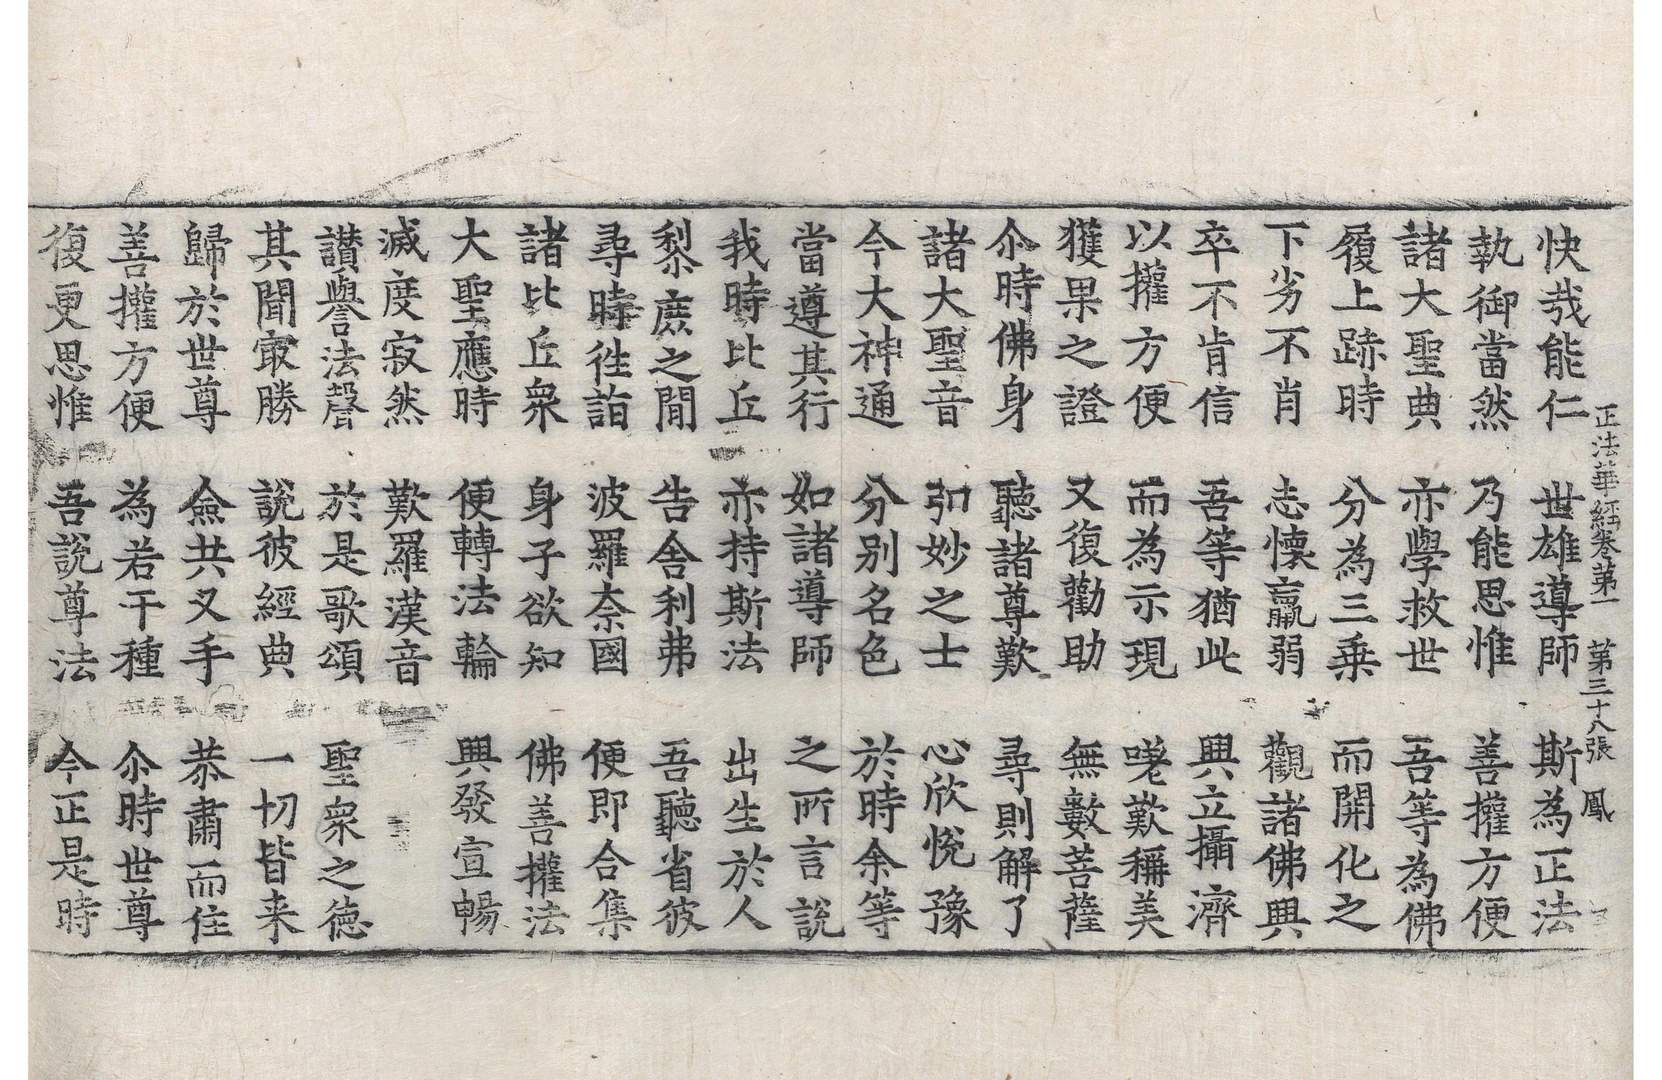 正法華經卷第一 第三十八張 鳳
快哉能仁 世雄導師 斯為正法
執御當然 乃能思惟 善權方便
諸大聖典 亦學救世 吾等為佛
履上跡時 分為三乘 而開化之
下劣不肖 志懷羸弱 觀諸佛興
卒不肯信 吾等猶此 興立攝濟
以權方便 而為示現 咾歎稱美
獲果之證 又復勸助 無數菩薩
尒時佛身 聽諸尊歎 尋則解了
諸大聖音 引妙之士 心欣悅豫
今大神通 分別名色 於時余等
當遵其行 如諸導師 之所言說
我時比丘 亦持斯法 出生於人
黎庶之間 告舍利弗 吾聽省彼
尋時徃詣 波羅奈國 便即合集
諸比丘衆 身子欲知 佛善權法
大聖應時 便轉法輪 興發宣暢
滅度寂然 歎羅漢音
讃譽法聲 於是歌頌 聖衆之德
其聞㝡勝 說彼經典 一切皆来
歸於世尊 僉共叉手 恭肅而住
善權方便 為若干種 尒時世尊
復更思惟 吾說尊法 今正是時